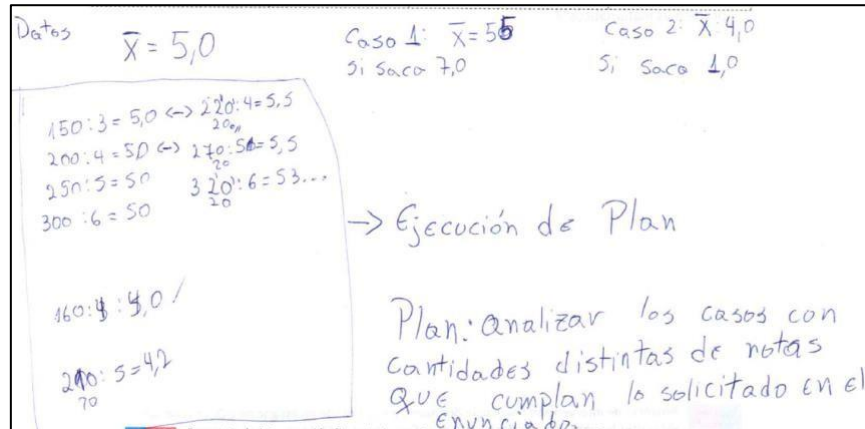 Datos
X̄ = 5,0
Caso 1: X̄=55
si saco 7,0
Caso 2: X̄ 4,0
Si saco 1,0
150:3=5,0 <-> 220:4=5,5
20
200:4=50 <-> 270:5=5,5
20
250:5=50 320:6=53...
20
300:6=50
→ Ejecución de Plan
160:4:4,0
210:5=4,2
70
Plan: analizar los casos con
cantidades distintas de notas
que cumplan lo solicitado en el
enunciado